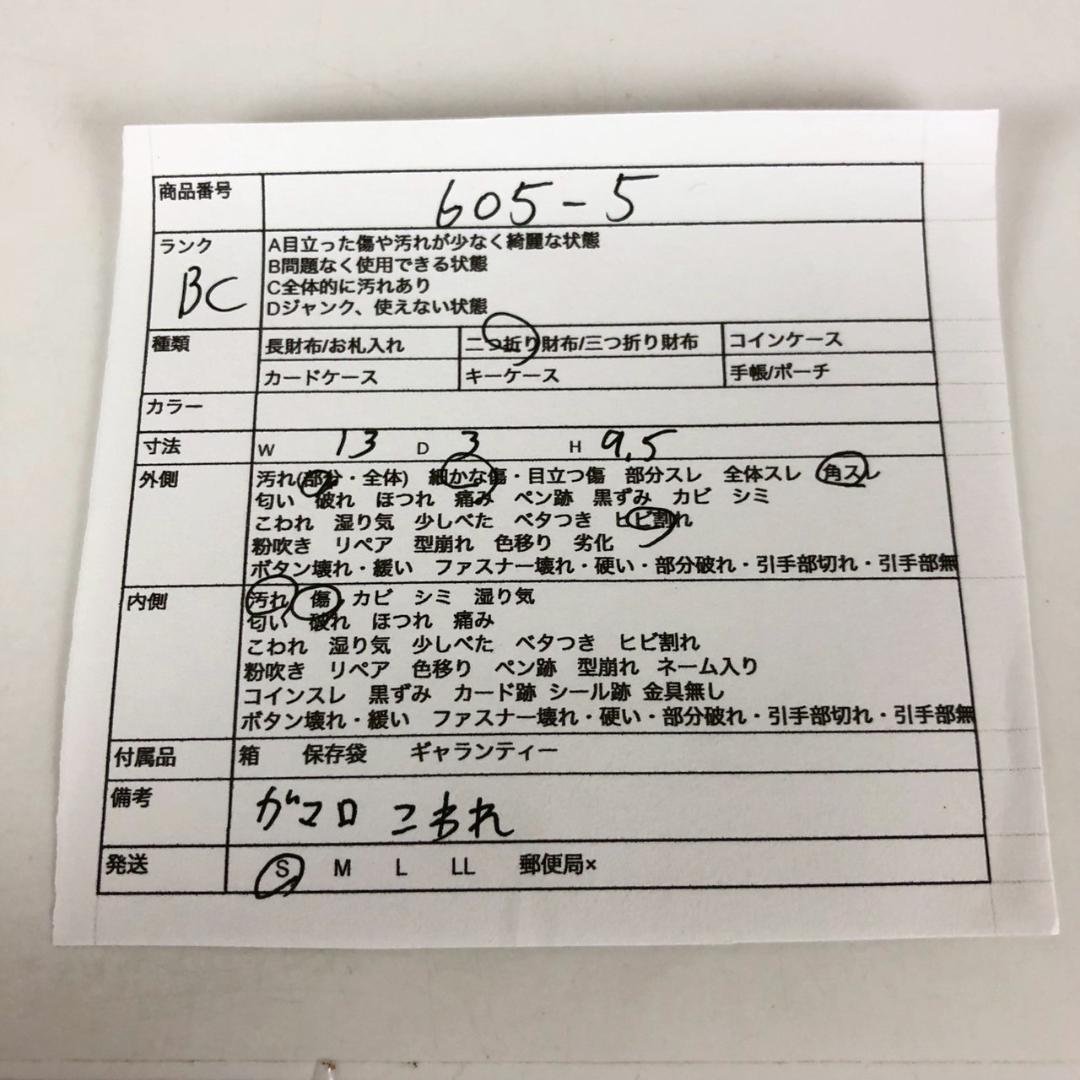 商品番号 605-5
ランク BC
A目立った傷や汚れが少なく綺麗な状態
B問題なく使用できる状態
C全体的に汚れあり
Dジャンク、使えない状態
種類 長財布/お札入れ 二つ折り財布/三つ折り財布 コインケース
カードケース キーケース 手帳/ポーチ
カラー
寸法 W 13 D 3 H 9.5
外側 汚れ(部分・全体) 細かな傷・目立つ傷 部分スレ 全体スレ 角スレ
匂い 破れ ほつれ 痛み ペン跡 黒ずみ カビ シミ
こわれ 湿り気 少しべた ベタつき ヒビ割れ
粉吹き リペア 型崩れ 色移り 劣化
ボタン壊れ・緩い ファスナー壊れ・硬い・部分破れ・引手部切れ・引手部無
内側 汚れ 傷 カビ シミ 湿り気
匂い 破れ ほつれ 痛み
こわれ 湿り気 少しべた ベタつき ヒビ割れ
粉吹き リペア 色移り ペン跡 型崩れ ネーム入り
コインスレ 黒ずみ カード跡 シール跡 金具無し
ボタン壊れ・緩い ファスナー壊れ・硬い・部分破れ・引手部切れ・引手部無
付属品 箱 保存袋 ギャランティー
備考 ガマロ こわれ
発送 S M L LL 郵便局×